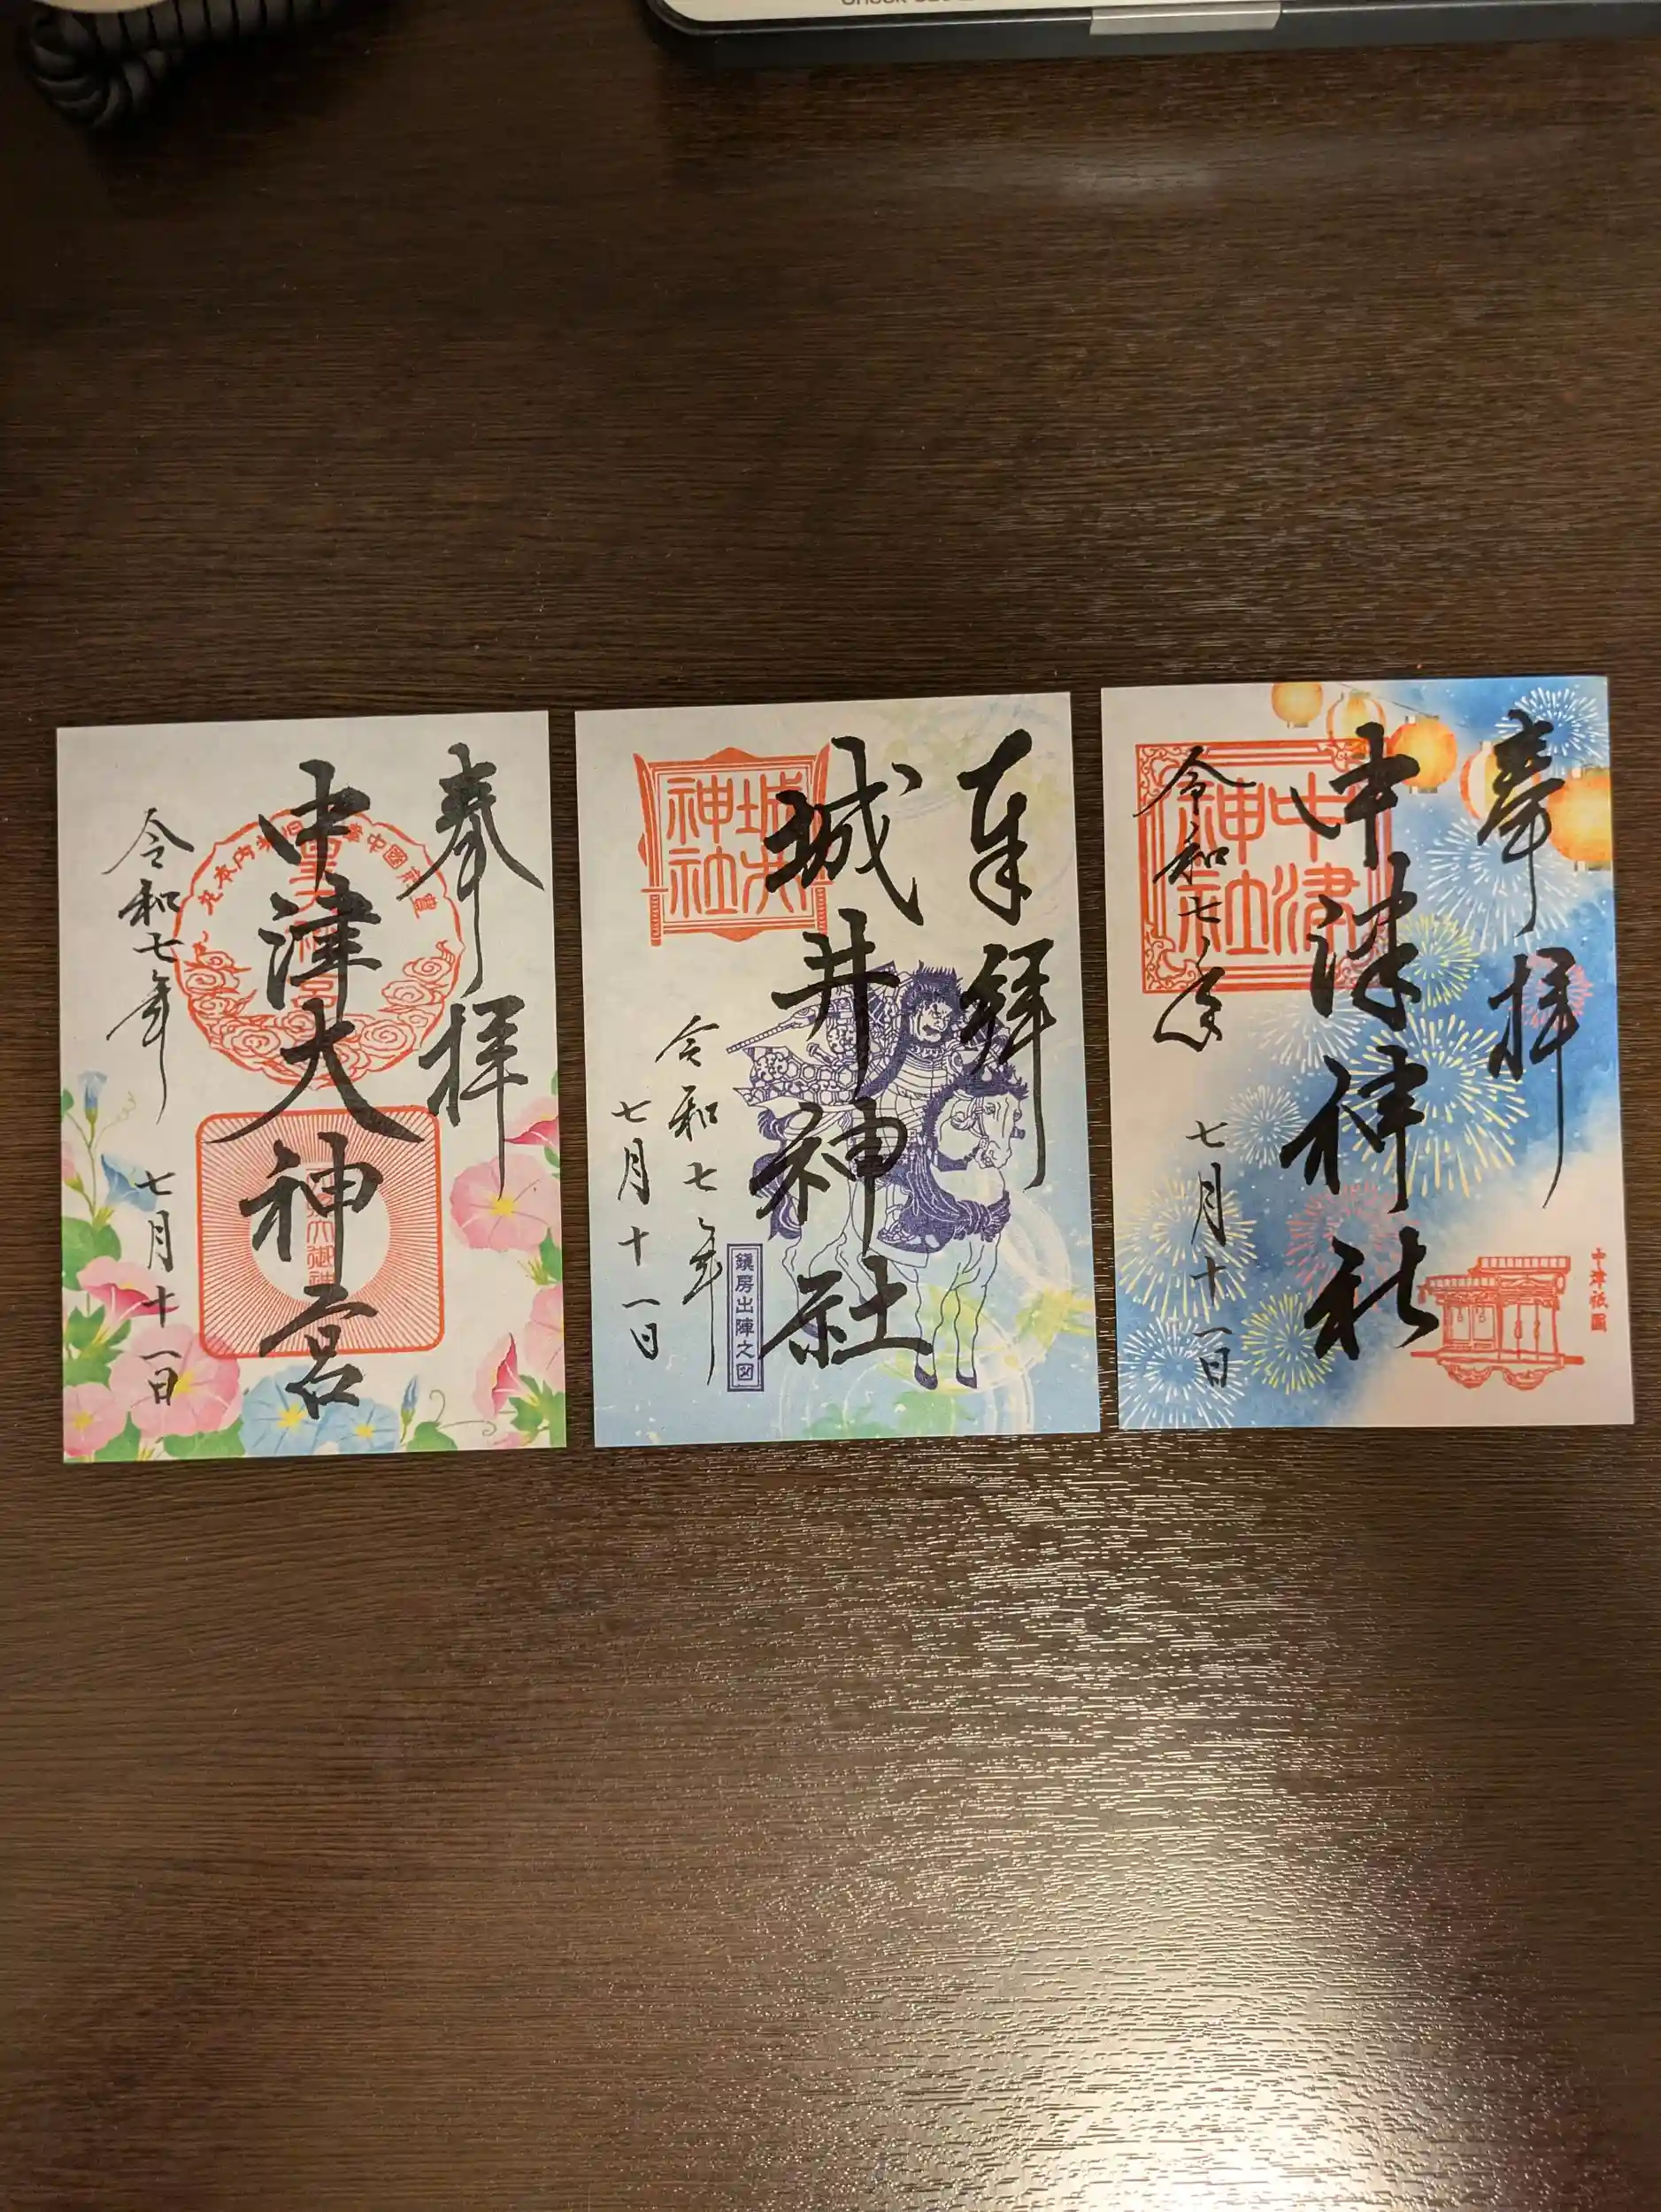 奉拝
中津大神宮
令和七年
七月十一日
奉拝
城井神社
令和七年
七月十一日
城井
神社
鎮房出陣之図
奉拝
中津神社
令和七年
七月十一日
中津
神社
中津祇園